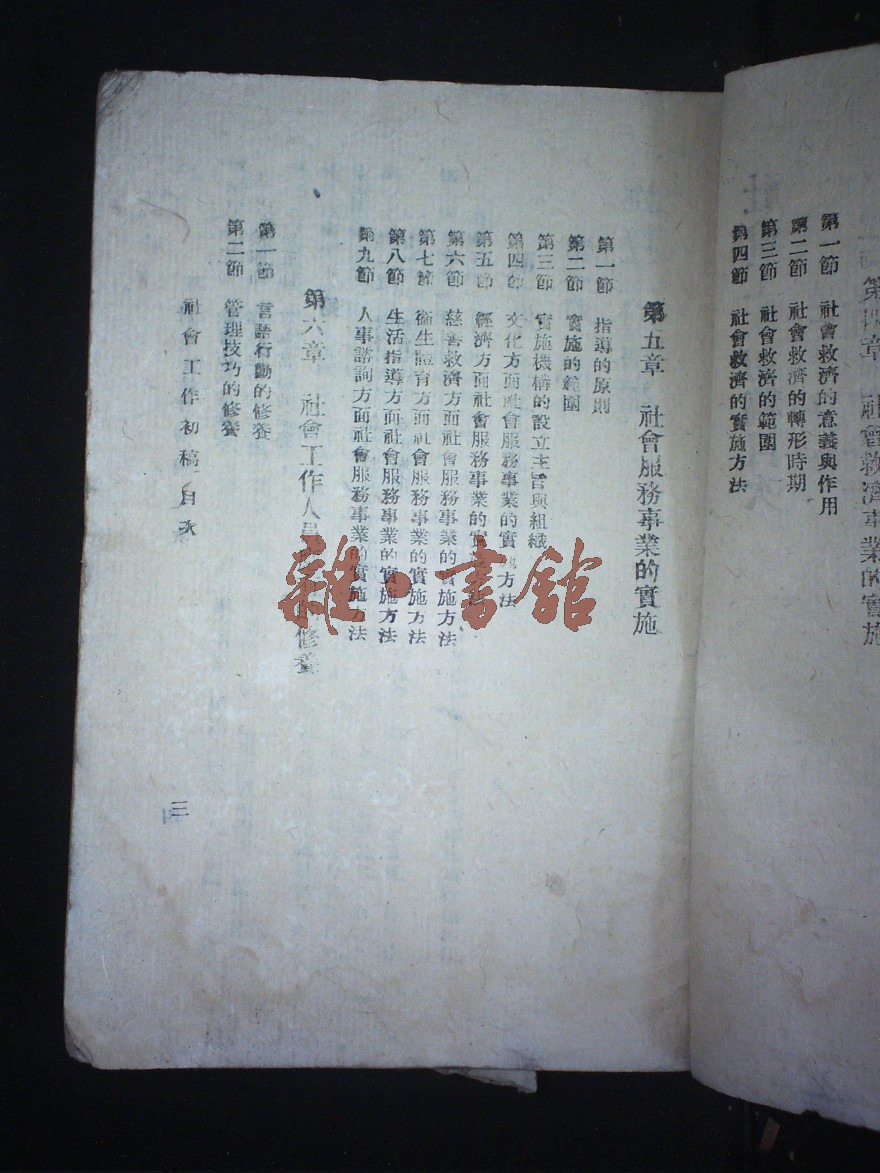 第四章　社會救濟事業的實施
第一節　社會救濟的意義與作用
第二節　社會救濟的轉形時期
第三節　社會救濟的範圍
第四節　社會救濟的實施方法
第五章　社會服務事業的實施
第一節　指導的原則
第二節　實施的範圍
第三節　實施機構的設立主旨與組織
第四節　文化方面社會服務事業的實　方法
第五節　經濟方面社會服務事業的實
第六節　慈善救濟方面社會服務事業的實施方法
第七節　衞生體育方面社會服務事業的實施方法
第八節　生活指導方面社會服務事業的實施方法
第九節　人事諮詢方面社會服務事業的實施方法
第六章　社會工作人員　修養
第一節　言語行動的修養
第二節　管理技巧的修養
社會工作初稿　目次
三
雜·書館